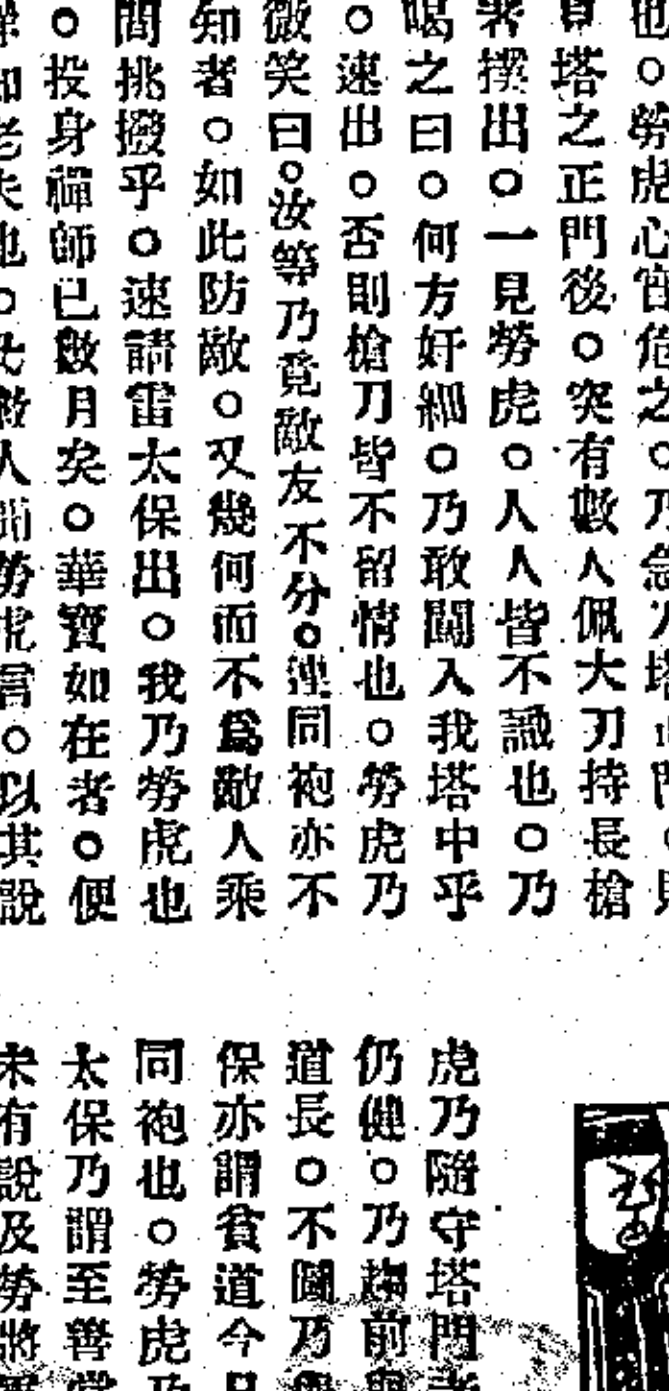 也。勞虎心窃危之。乃急入塔
塔之正門後。突有數人佩大刀持長槍
者撲出。一見勞虎。人人皆不識也。乃
喝之曰。何方奸細。乃敢闖入我塔中乎
。速出。否則槍刀皆不留情也。勞虎乃
微笑曰。汝等乃竟敵友不分。連同袍亦不
知者。如此防敵。又幾何而不爲敵人乘
間挑撥乎。速請雷太保出。我乃勞虎也
。投身禪師已數月矣。華寶如在者。便
人聞勞虎言。以其說
虎乃隨守塔門
仍健。乃趨前
道長。不圖乃
保亦謂貧道今
同袍也。勞虎乃
太保乃謂至善
未有說及勞